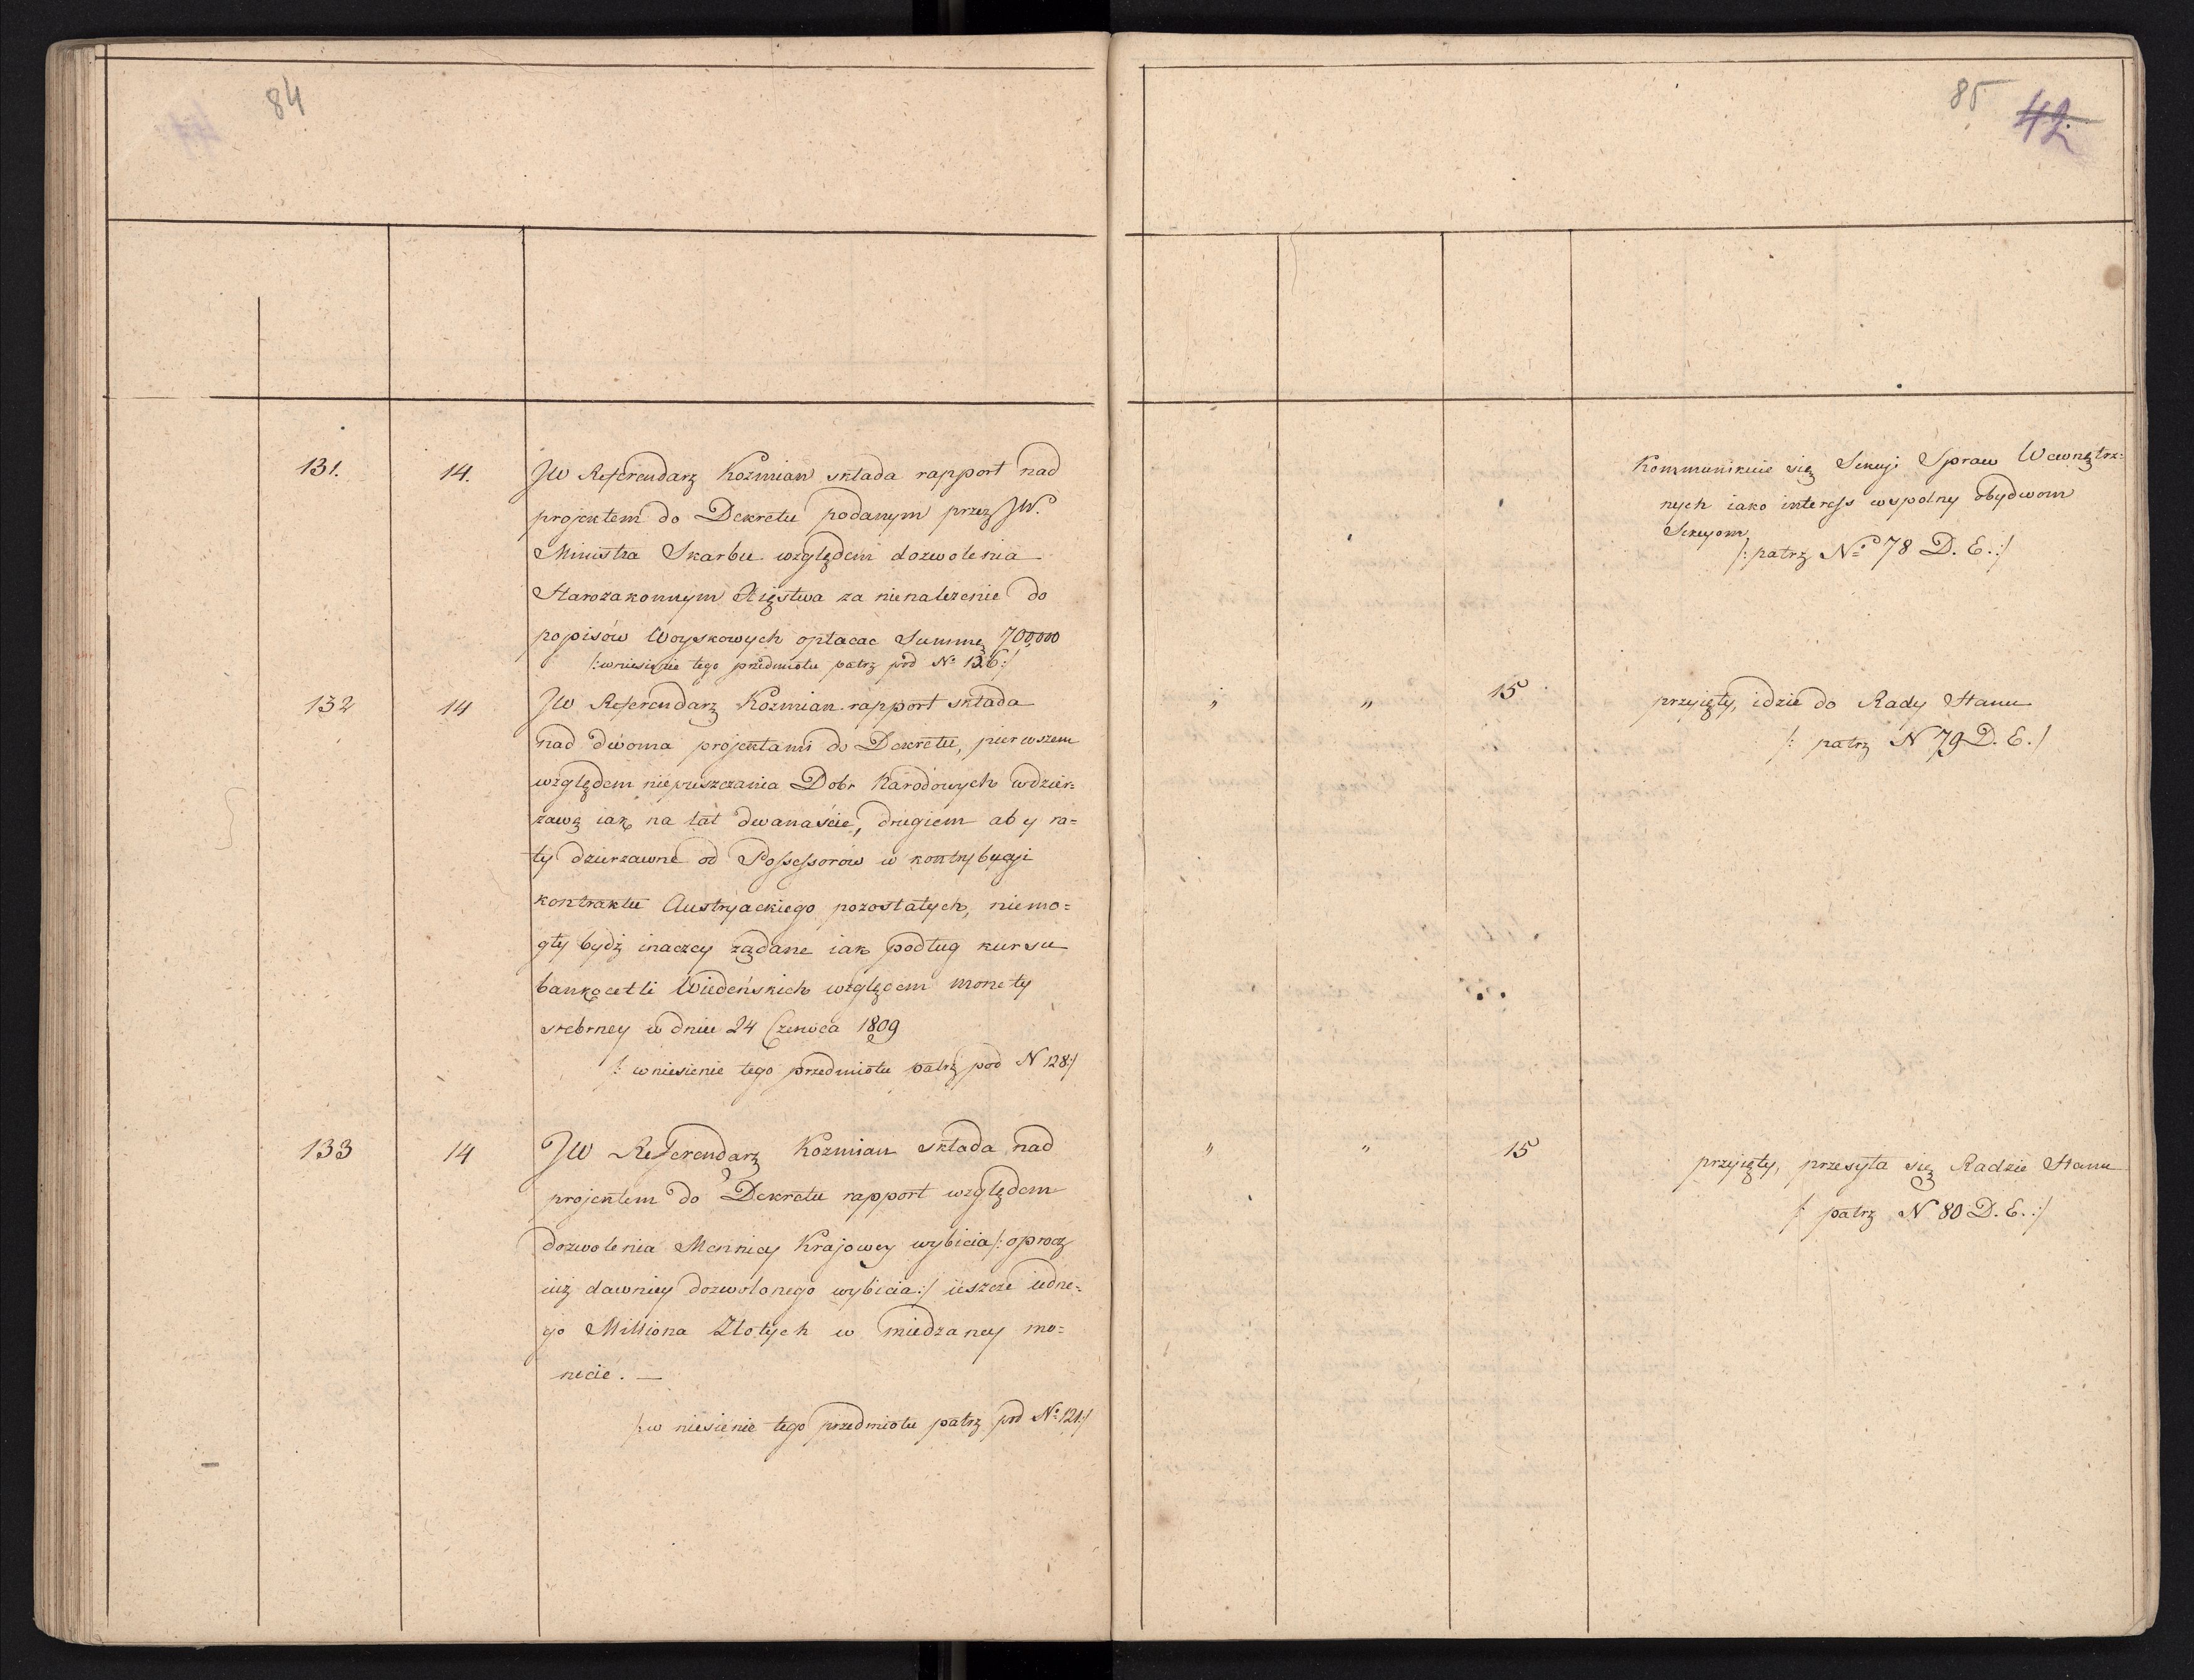 84
131. 14. JW Referendarz Kozmian składa rapport nad
projektem do Dekretu podanym przez JW.
Ministra Skarbu względem dozwolenia
Starozakonnym Xięstwa za nienależenie do
popisów Woyskowych opłacac Summę 700,000
/: wniesienie tego przedmiotu patrz pod No 126 :/
132 14 JW Referendarz Kozmian rapport składa
nad dwoma projektami do Dekretu, pierwszem
względem niepuszczania Dobr Narodowych w dzier=
zawę iak na lat dwanaście, drugiem aby ra=
ty dzierzawne od Possessorow w kontrybucyi
kontraktu Austryackiego pozostałych, niemo=
gły bydz inaczey ządane iak podług kursu
bankocetli Wiedeńskich względem monety
srebrney w dniu 24 Czerwca 1809
/: wniesienie tego przedmiotu patrz pod N 128 :/
133 14 JW Referendarz Kozmian składa nad
projektem do Dekretu rapport względem
dozwolenia Mennicy Krajowey wybicia /: oprocz
iuż dawniey dozwolonego wybicia :/ ieszcze iedne=
go Milliona Złotych w miedzaney mo=
necie. —
/: w niesienie tego przedmiotu patrz pod No 121 :/
85 42
Kommunikuie się Sekcyi Spraw Wewnętrz=
nych iako interess wspolny obydwom
Sekcyom
/: patrz No 78 D. E. :/
" " 15 przyięty, idzie do Rady Stanu
/: patrz N 79 D. E. /
" " 15 przyięty, przesyła się Radzie Stanu
/: patrz N 80 D. E. :/